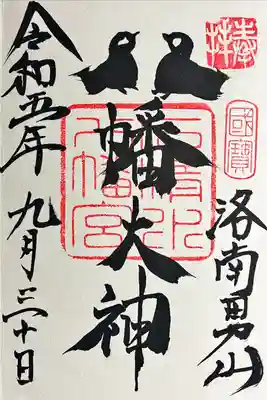 奉拝
國寶
洛南男山
八幡大神
石清水八幡宮
令和五年九月三十日